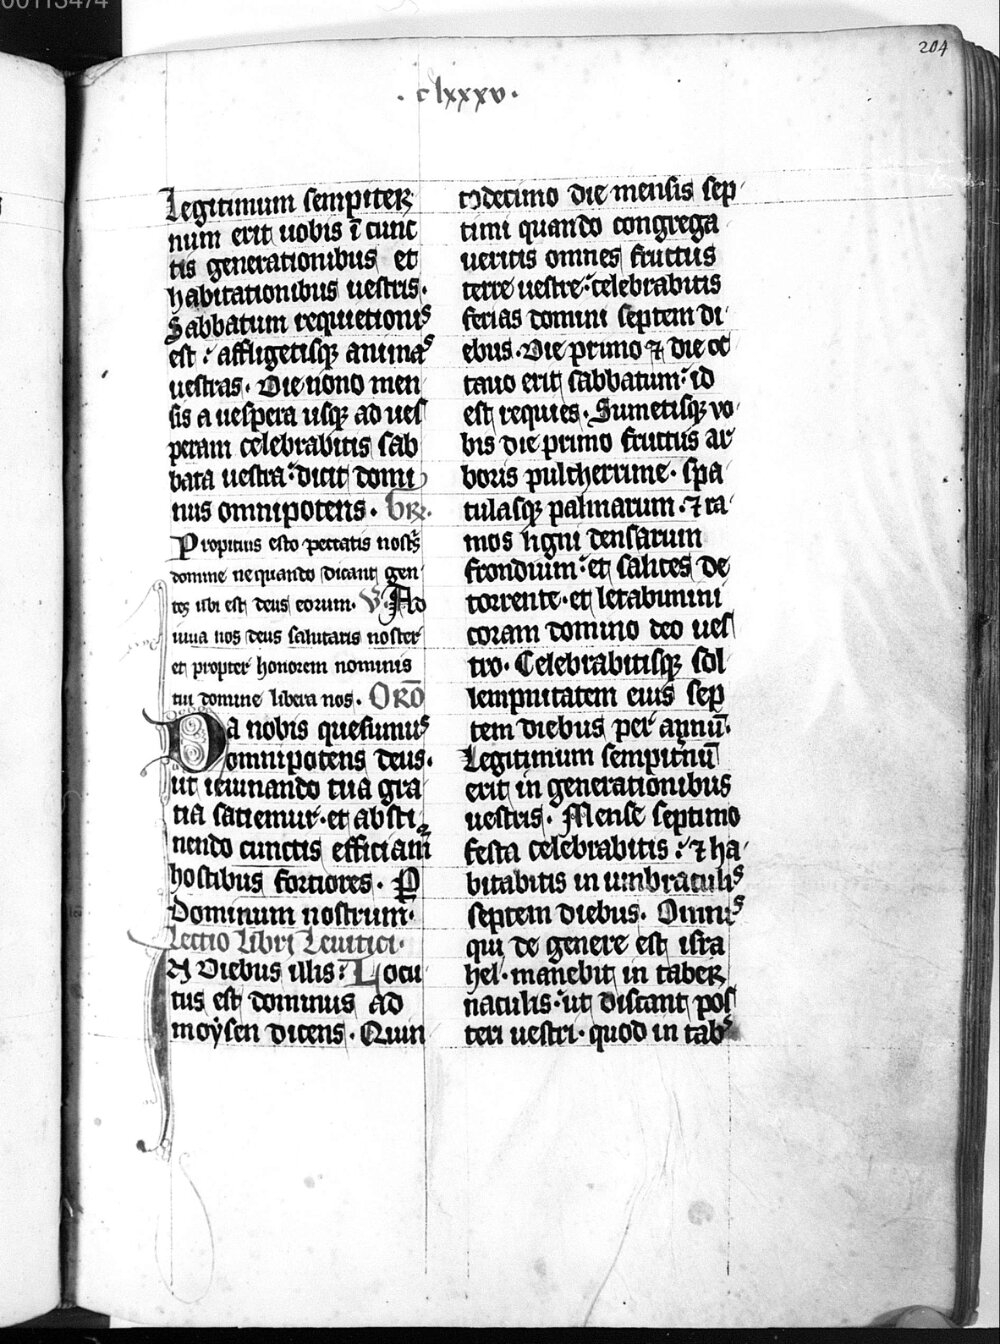 00113474
204
. clxxxv.
Legitimum sempiter
num erit uobis ī cunc
tis generationibus et
habitationibus uestris.
Sabbatum requietionis
est : affligetisqꝫ animas
uestras. Die nono men
sis a uespera usqꝫ ad ues
peram celebrabitis sab
bata uestra. dicit domi
nus omnipotens.
Propitius esto peccatis nostris
domine ne quando dicant gen
tes ubi est deus eorum. V. Ad
iuua nos deus salutaris noster
et propter honorem nominis
tui domine libera nos. Orō
Da nobis quesumus
omnipotens deus.
ut ieiunando tua gra
tia satiemur. et absti
nendo cunctis efficiam̄
hostibus fortiores. P
Dominum nostrum.
Lectio libri Leuitici.
In Diebus illis: Locu
tus est dominus ad
moysen dicens. Quin
todecimo die mensis sep
timi quando congrega
ueritis omnes fructus
terre uestre. celebrabitis
ferias domini septem di
ebus. Die primo ⁊ die oc
tauo erit sabbatum. id
est requies. Sumetisqꝫ vo
bis die primo fructus ar
boris pulcherrime. spa
tulasqꝫ palmarum. ⁊ ra
mos ligni densarum
frondium. et salices de
torrente. et letabimini
coram domino deo ues
tro. Celebrabitisqꝫ sol
lempnitatem eius sep
tem diebus per annū.
Legitimum sempit̄nū
erit in generationibus
uestris. Mense septimo
festa celebrabitis : ⁊ ha
bitabitis in umbraculis
septem diebus. Omnis
qui de genere est isra
hel. manebit in taber
naculis. ut discant pos
teri uestri. quod in tab̄